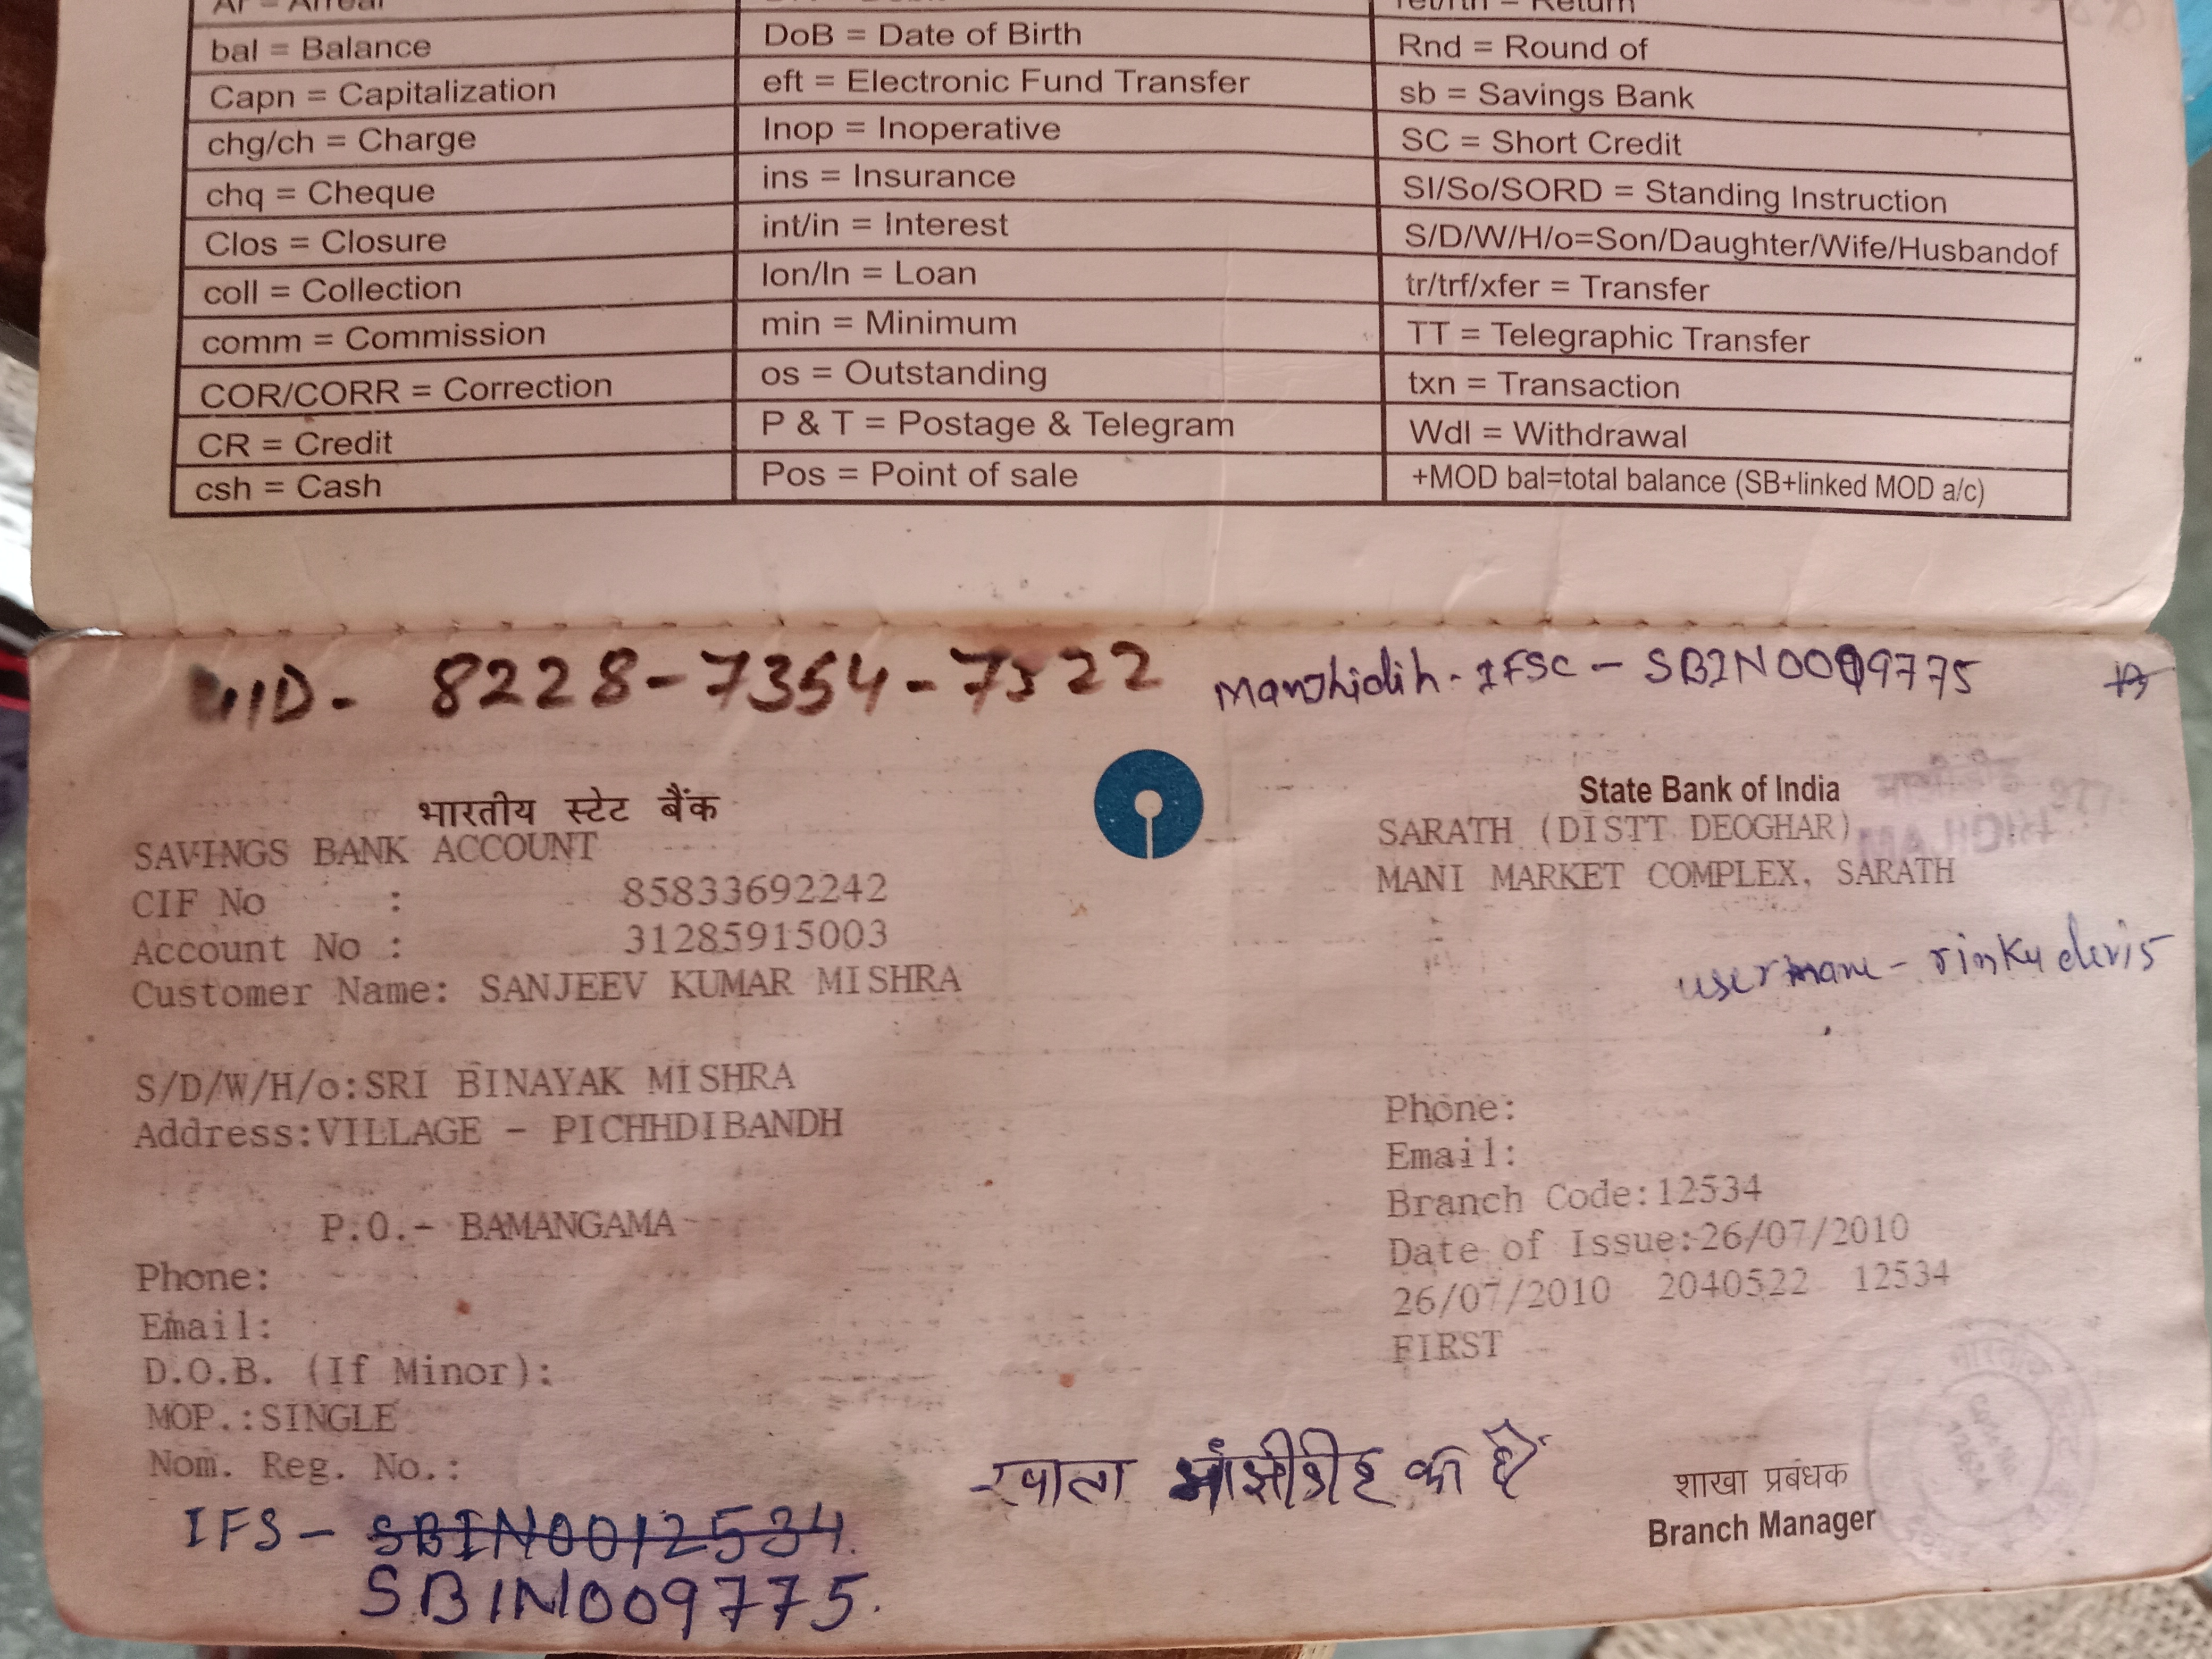 bal = Balance
Capn = Capitalization
chg/ch = Charge
chq = Cheque
Clos = Closure
coll = Collection
comm = Commission
COR/CORR = Correction
CR = Credit
csh = Cash
DoB = Date of Birth
eft = Electronic Fund Transfer
Inop = Inoperative
ins = Insurance
int/in = Interest
lon/ln = Loan
min = Minimum
os = Outstanding
P & T = Postage & Telegram
Pos = Point of sale
ret/rtn = Return
Rnd = Round of
sb = Savings Bank
SC = Short Credit
SI/So/SORD = Standing Instruction
S/D/W/H/o=Son/Daughter/Wife/Husbandof
tr/trf/xfer = Transfer
TT = Telegraphic Transfer
txn = Transaction
Wdl = Withdrawal
+MOD bal=total balance (SB+linked MOD a/c)
UID- 8228-7354-7522
Manjhidih - IFSC - SBIN0009775
भारतीय स्टेट बैंक
SAVINGS BANK ACCOUNT
CIF No : 85833692242
Account No : 31285915003
Customer Name: SANJEEV KUMAR MISHRA
S/D/W/H/o:SRI BINAYAK MISHRA
Address:VILLAGE - PICHHDIBANDH
P.O.- BAMANGAMA
Phone:
Email:
D.O.B. (If Minor):
MOP.:SINGLE
Nom. Reg. No.:
IFS - SBIN0012534.
SBIN009775.
State Bank of India
SARATH (DISTT DEOGHAR)
MANI MARKET COMPLEX, SARATH
username - rinkydevi5
Phone:
Email:
Branch Code:12534
Date of Issue:26/07/2010
26/07/2010 2040522 12534
FIRST
खाता मांझीडीह का है
शाखा प्रबंधक
Branch Manager